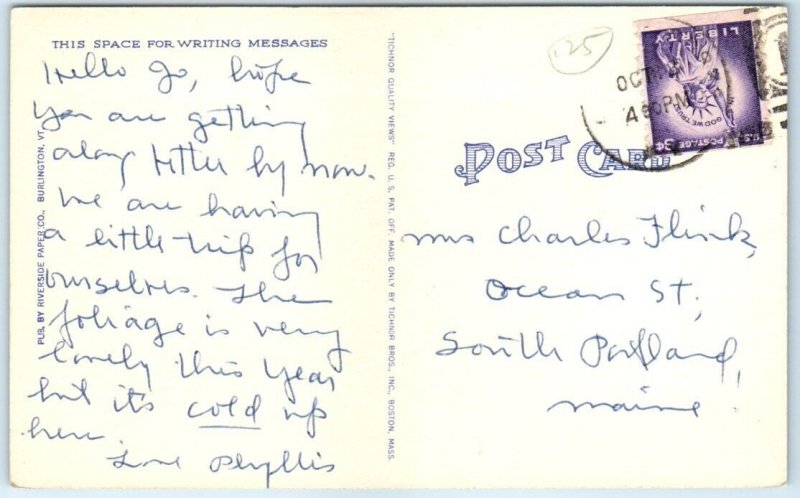 THIS SPACE FOR WRITING MESSAGES
Hello Jo, hope
you are getting
along better by now.
We are having
a little trip for
ourselves. The
foliage is very
lovely this year
but it's cold up
here.
Love Phyllis
PUB. BY RIVERSIDE PAPER CO., BURLINGTON, VT.
"TICHNOR QUALITY VIEWS" REG. U. S. PAT. OFF. MADE ONLY BY TICHNOR BROS., INC., BOSTON, MASS.
125
OCT
4 PM
LIBERTY
IN GOD WE TRUST
U.S. POSTAGE 3¢
POST CARD
Mrs Charles Flink,
Ocean St,
South Portland,
Maine.